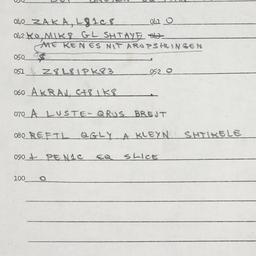 060 ZAKA, L81C8 061 O
062 KO, MIK8 GL SHTAYF
ME KENES NIT AROPSHLINGEN
050 8
051 Z8L8IPK83 052 O
060 AKRAJ, C48IK8
070 A LUSTE-QRUS BREJT
080 REFTL QGLY A KLEYN SHTIKELE
090 PENIC EQ SLICE
100 O